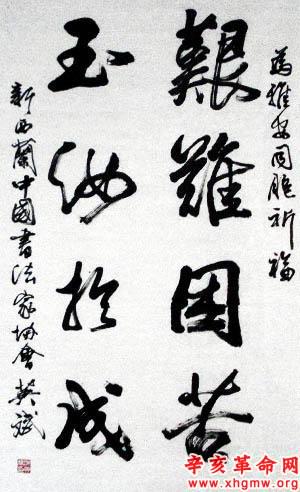 為雅安同胞祈福
艱難困苦
玉汝於成
新西蘭中國書法家協會
辛亥革命网
www.xhgmw.org